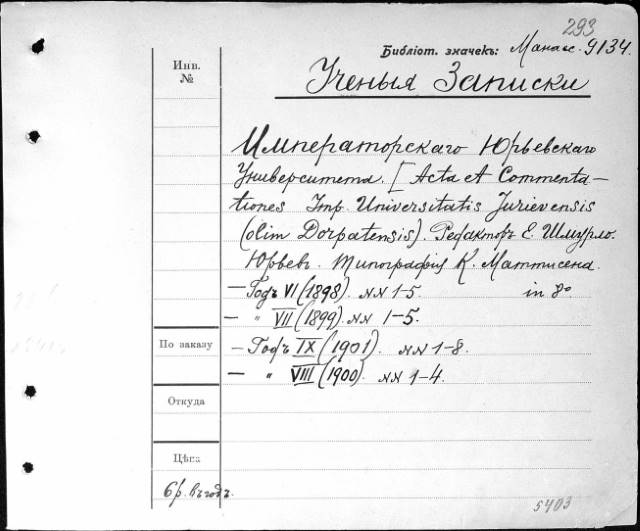 293
Библіот. значекъ: Манас. 9134.
Инв.
№
Ученыя Записки
Императорскаго Юрьевскаго
Университета. [Acta et Commenta-
tiones Imp. Universitatis Jurievensis
(olim Dorpatensis). Редакторъ Е. Шмурло.
Юрьевъ. Типографія К. Маттисена.
— Годъ VI (1898). NN 1-5. in 8º
— " VII (1899). NN 1-5.
По заказу
— Годъ IX (1901). NN 1-8.
— " VIII (1900). NN 1-4.
Откуда
Цѣна
6 р. въ годъ.
5403